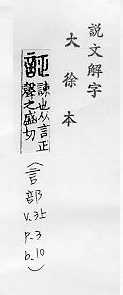 說文解字
大徐本
証 諫也从言正
聲之盛切
(言部 V.3上 P.3 b.10)